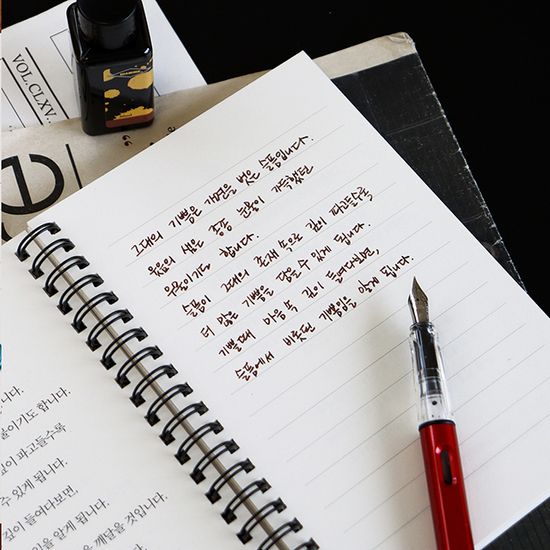 VOL.CLXV..
e
그대의 기쁨은 가면을 벗은 슬픔입니다.
웃음의 샘은 종종 눈물이 가득했던
우물이기도 합니다.
슬픔이 그대의 존재 속으로 깊이 파고들수록
더 많은 기쁨을 담을 수 있게 됩니다.
기쁠때 마음 속 깊이 들여다보면,
슬픔에서 비롯된 기쁨임을 알게 됩니다.
니다.
물이기도 합니다.
깊이 파고들수록
수 있게 됩니다.
깊이 들여다보면,
임을 알게 됩니다.
을 깨달을 것입니다.